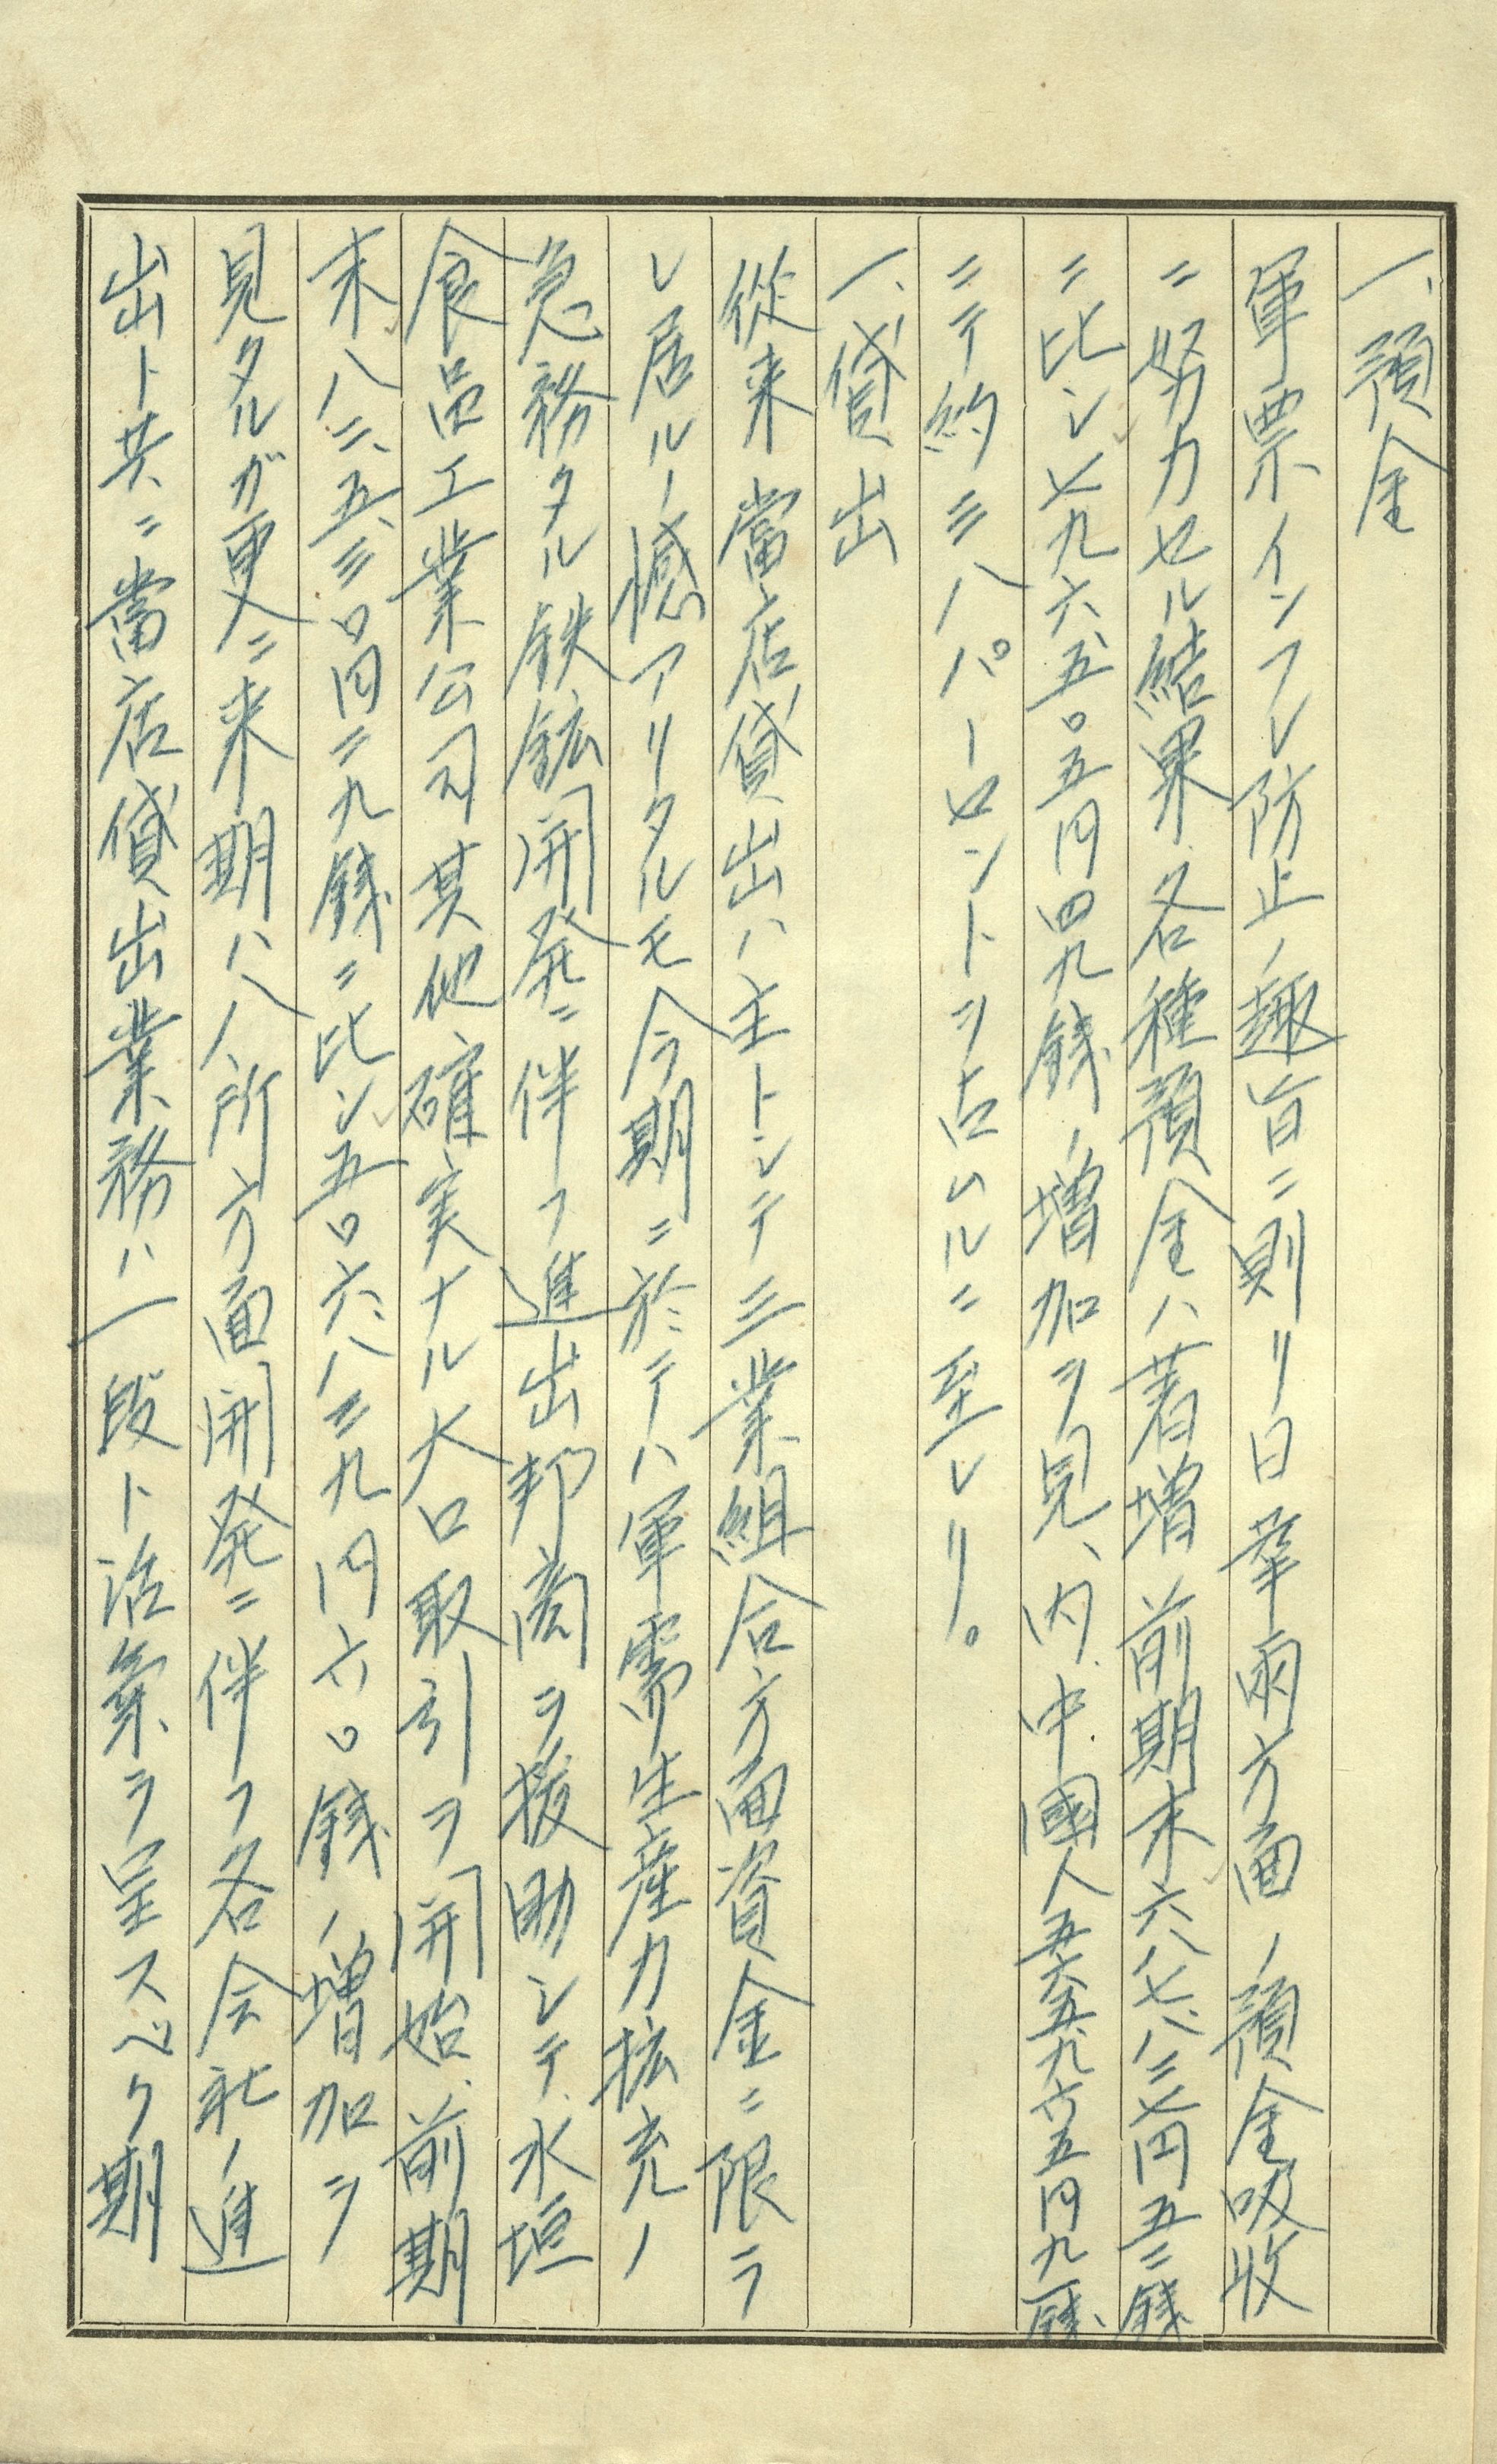 一、預金
軍票インフレ防止ノ趣旨ニ則リ日華両方面ノ預金吸收
ニ努力セル結果各種預金ハ著増前期末六八七、八三七円五二銭
ニ比シ七九六五〇五円四九銭ノ増加ヲ見、内中國人五六五九六五円九一銭、
ニテ約三八パーセントヲ占ムルニ至レリ。
一、貸出
從来當店貸出ハ主トシテ三業組合方面資金ニ限ラ
レ居ルノ憾アリタルモ今期ニ於テハ軍需生産力拡充ノ
急務タル鉄鉱開発ニ伴フ進出邦商ヲ援助シテ水垣
食品工業公司其他確実ナル大口取引ヲ開始、前期
末八二、五三〇円二九銭ニ比シ五〇六、八三九円六〇銭ノ増加ヲ
見タルガ更ニ来期ハ八ノ所方面開発ニ伴フ各会社ノ進
出ト共ニ當店貸出業務ハ一段ト活氣ヲ呈スベク期